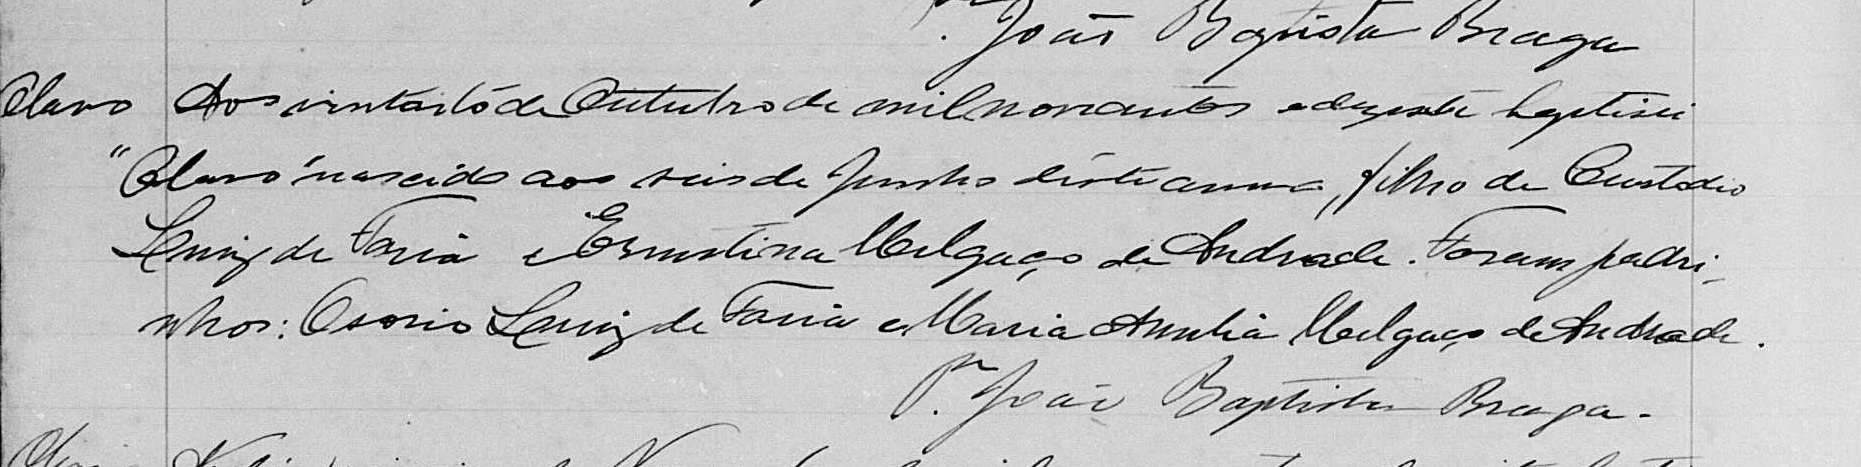 João Baptista Braga
Olavo Aos vinteoito de Outubro de mil novecentos e dezesete baptisei
"Olavo" nascido aos seis de Junho d'este anno, filho de Custodio
Luiz de Faria e Ernestina Melgaço de Andrade. Foram padri-
nhos: Osorio Luiz de Faria e Maria Amelia Melgaço de Andrade.
Pe. João Baptista Braga.